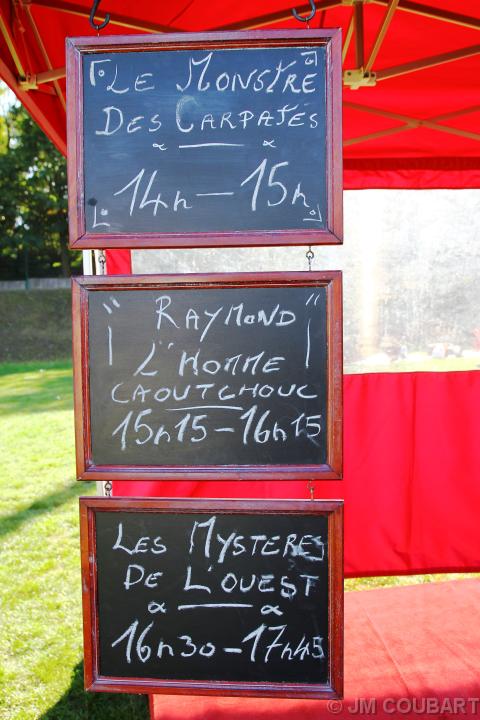 Le Monstre
Des Carpates
14h — 15h
" Raymond "
L'Homme
Caoutchouc
15h15 - 16h15
Les Mysteres
De L'ouest
16h30 - 17h45
© JM COUBART